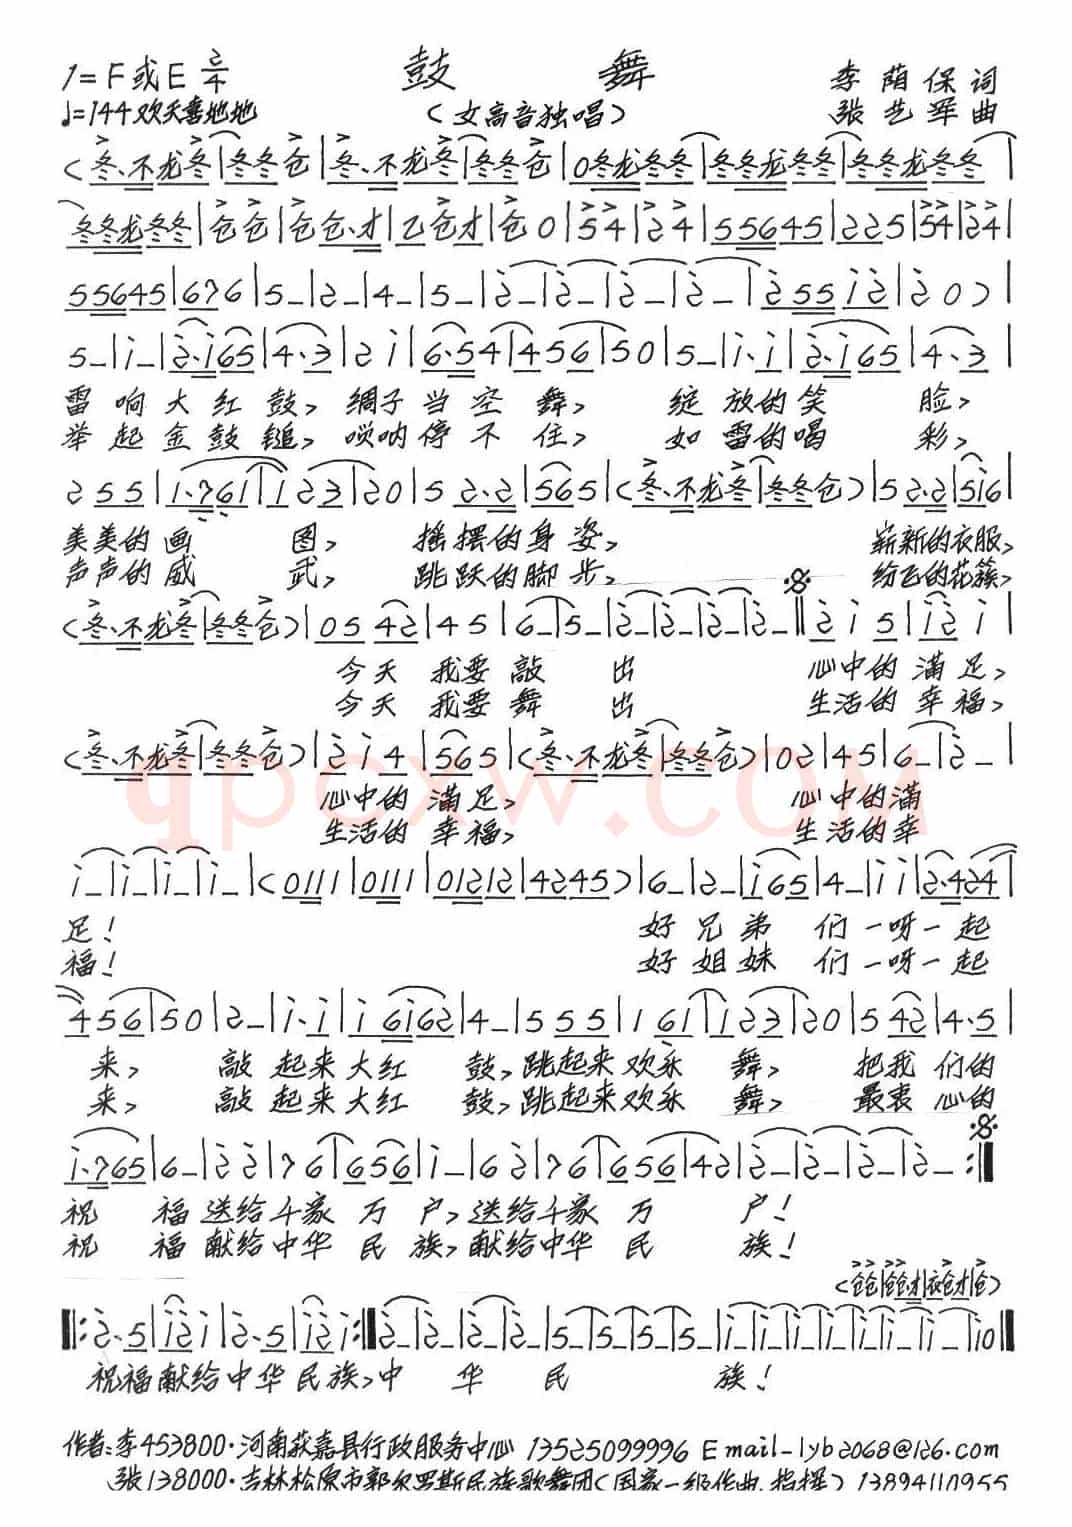 1=F或E 2/4 鼓 舞 李荫保词
♩=144 欢天喜地地 (女高音独唱) 张艺军曲
(冬、不龙冬|冬冬仓|冬、不龙冬|冬冬仓|0冬龙冬冬|冬冬龙冬冬|冬冬龙冬冬|
冬冬龙冬冬|仓仓|仓仓、才|乙仓才|仓0|54|24|55645|225|54|24|
55645|676|5–|2–|4–|5–|2–|2–|2–|2–|25512|20)|
5–|1–|2·165|4·3|21|6·54|456|50|5–|1·1|2·165|4·3|
雷响大红鼓,绸子当空舞,绽放的笑脸,
举起金鼓鎚,唢呐停不住,如雷的喝彩,
255|1·761|123|20|52·2|565|(冬、不龙冬|冬冬仓)|52·2|516|
美美的画图,摇摆的身姿,崭新的衣服,
声声的威武,跳跃的脚步,纷飞的花簇,
(冬、不龙冬|冬冬仓)|0542|45|6–|5–|2–|2–|2–|2–‖215|121|
今天我要敲出心中的满足,
今天我要舞出生活的幸福,
(冬、不龙冬|冬冬仓)|214|565|(冬、不龙冬|冬冬仓)|02|45|6–|2–|
心中的满足,心中的满
生活的幸福,生活的幸
qpcxw.com
1–|1–|1–|1–|(0111|0111|01212|4245)|6–|2–|165|4–|11|2·424|
足!好兄弟们一呀一起
福!好姐妹们一呀一起
456|50|2–|1·1|16162|4–|555|161|123|20|542|4·5|
来,敲起来大红鼓,跳起来欢乐舞,把我们的
来,敲起来大红鼓,跳起来欢乐舞,最衷心的
1·765|6–|22|76|656|1–|62|76|656|42|2–|2–|2–|2–:‖
祝福送给千家万户,送给千家万户!
祝福献给中华民族,献给中华民族!
(仓仓|仓仓才|衣仓才|仓)
‖:2·5|121|2·5|121:‖2–|2–|2–|2–|5–|5–|5–|5–|1–|1–|1–|1–|1–|1–|1–|10‖
祝福献给中华民族,中华民族!
作者:李453800·河南获嘉县行政服务中心 13525099996 Email–lyb2068@126.com
张138000·吉林松原市郭尔罗斯民族歌舞团(国家一级作曲.指挥)13894110955